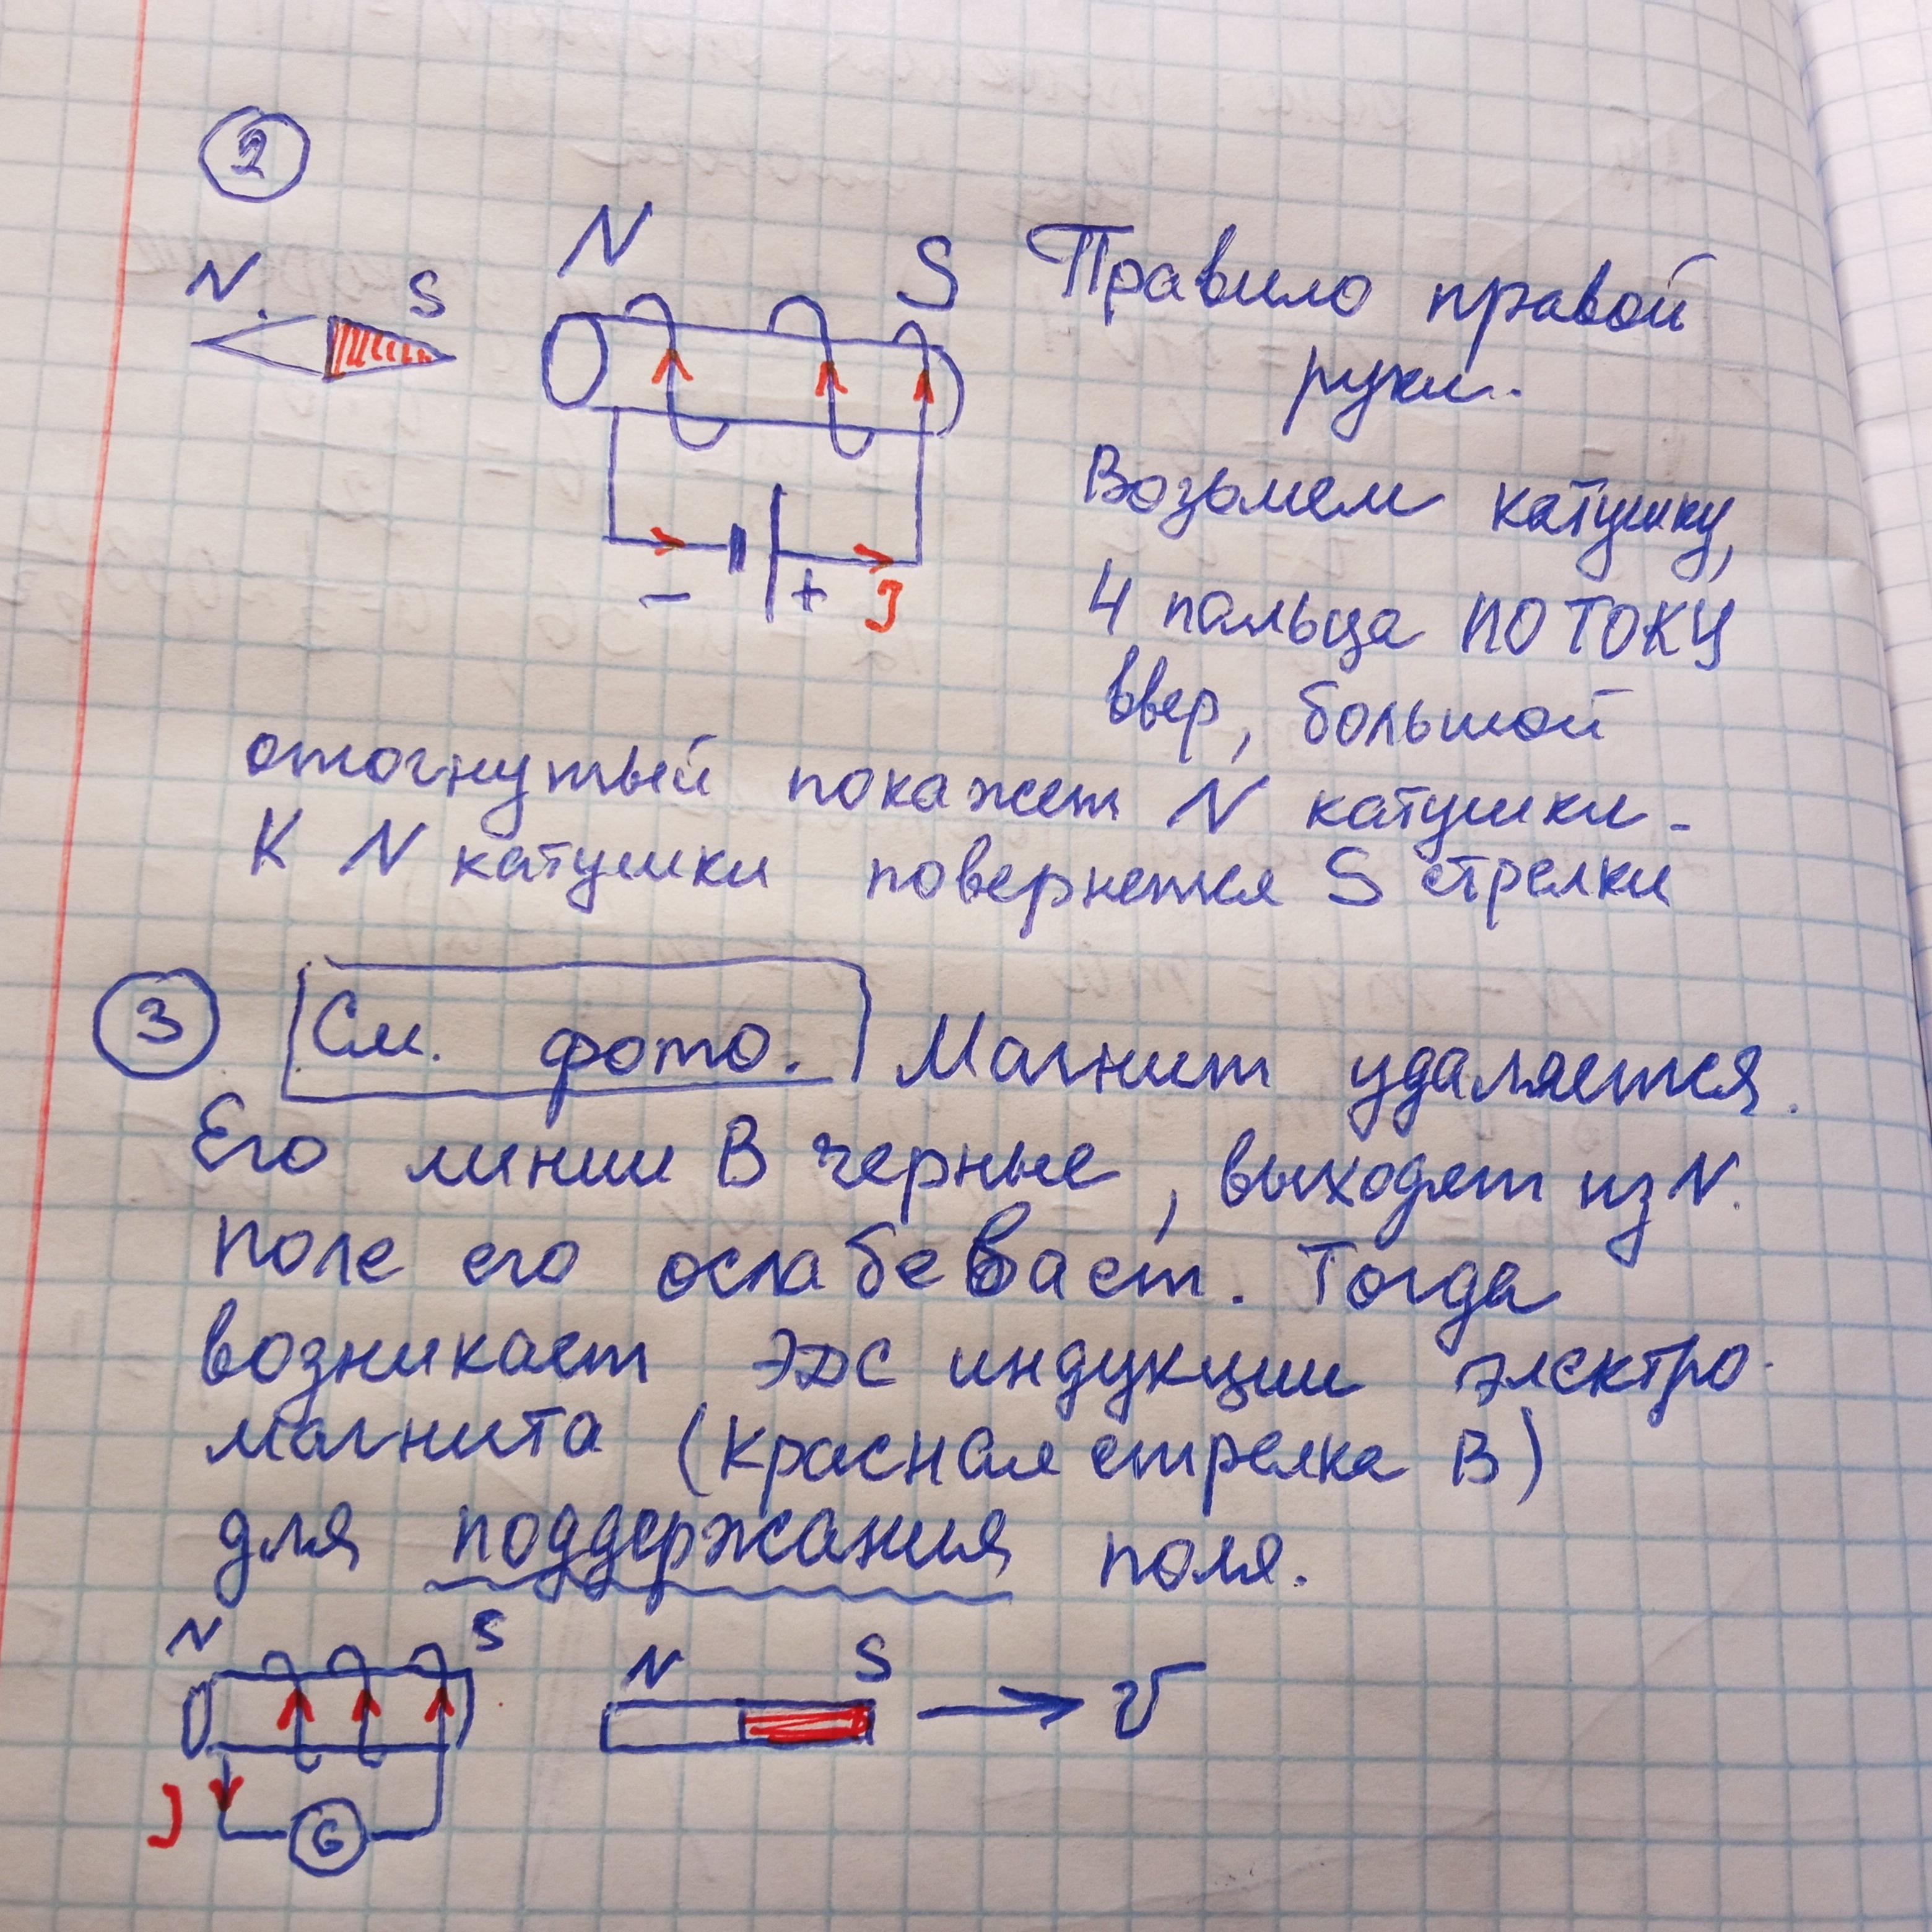 2
N S N S Правило правой
руки.
Возьмем катушку,
4 пальца ПО ТОКУ
ввер, большой
- + J
отогнутый покажет N катушки.
К N катушки повернется S стрелки
3 См. фото. Магнит удаляется.
Его линии В черные, выходят из N.
Поле его ослабевает. Тогда
возникает ЭДС индукции электро-
магнита (красная стрелка В)
для поддержания поля.
N S N S
v
J G